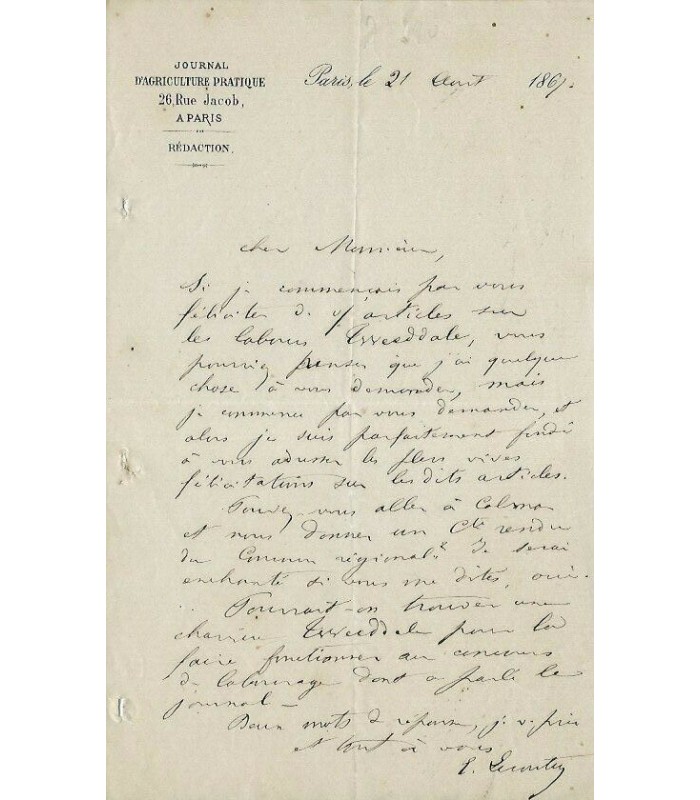 JOURNAL
D'AGRICULTURE PRATIQUE
26, Rue Jacob,
A PARIS
RÉDACTION.
Paris, le 21 Aout 1867.
cher Monsieur,
Si je commençais par vous
féliciter de vs articles sur
les labours Tweeddale, vous
pourriez penser que j'ai quelque
chose à vous demander, mais
je commence par vous demander, et
alors je suis parfaitement fondé
à vous adresser les plus vives
félicitations sur lesdits articles.
Pouvez-vous aller à Colmar
et nous donner un Cte rendu
du Concours régional? Je serai
enchanté si vous me dites, oui.
Pourrait-on trouver une
charrue Tweeddale pour la
faire fonctionner au concours
de labourage dont a parlé le
journal —
Deux mots de réponse, je v. prie
et tout à vous
E. Lecouteux